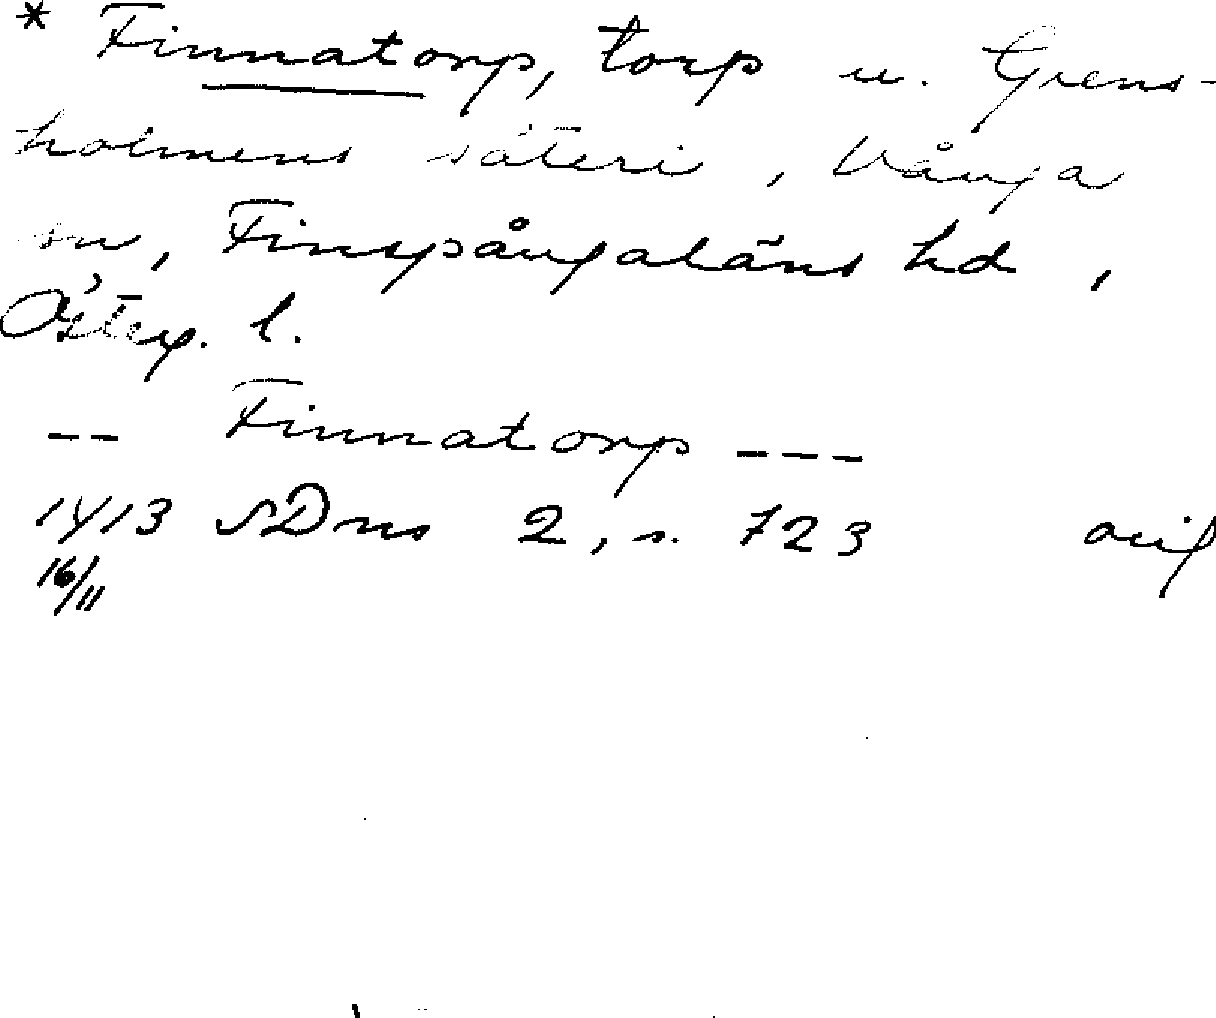 * Finnatorp, torp u. Grens-
holmens säteri, Vånga
sn, Finspångaläns hd,
Österg. l.
-- Finnatorp ---
1413 SDns 2, s. 723 orig
16/11